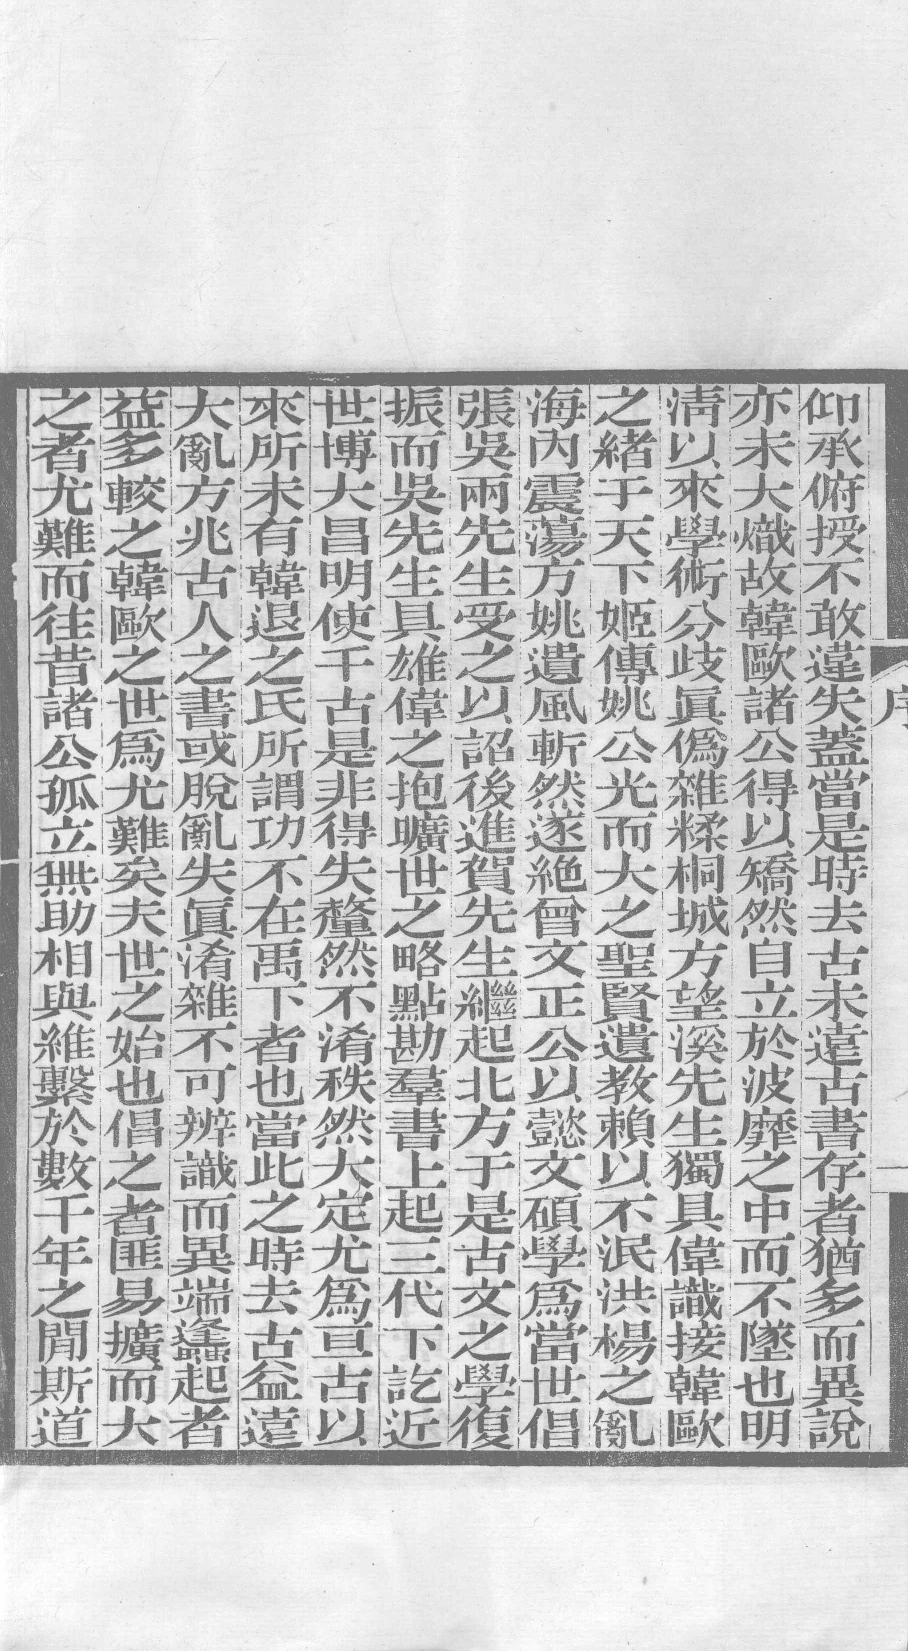 序
仰承俯授不敢違失蓋當是時去古未遠古書存者猶多而異說
亦未大熾故韓歐諸公得以矯然自立於波靡之中而不墜也明
淸以來學術分歧眞僞雜糅桐城方望溪先生獨具偉識接韓歐
之緒于天下姬傳姚公光而大之聖賢遺教賴以不泯洪楊之亂
海內震蕩方姚遺風斬然遂絕曾文正公以懿文碩學爲當世倡
張吳兩先生受之以詔後進賀先生繼起北方于是古文之學復
振而吳先生具雄偉之抱曠世之略點勘羣書上起三代下訖近
世博大昌明使千古是非得失釐然不淆秩然大定尤爲亘古以
來所未有韓退之氏所謂功不在禹下者也當此之時去古益遠
大亂方兆古人之書或脫亂失眞淆雜不可辨識而異端蠭起者
益多較之韓歐之世爲尤難矣夫世之始也倡之者匪易擴而大
之者尤難而往昔諸公孤立無助相與維繫於數千年之閒斯道